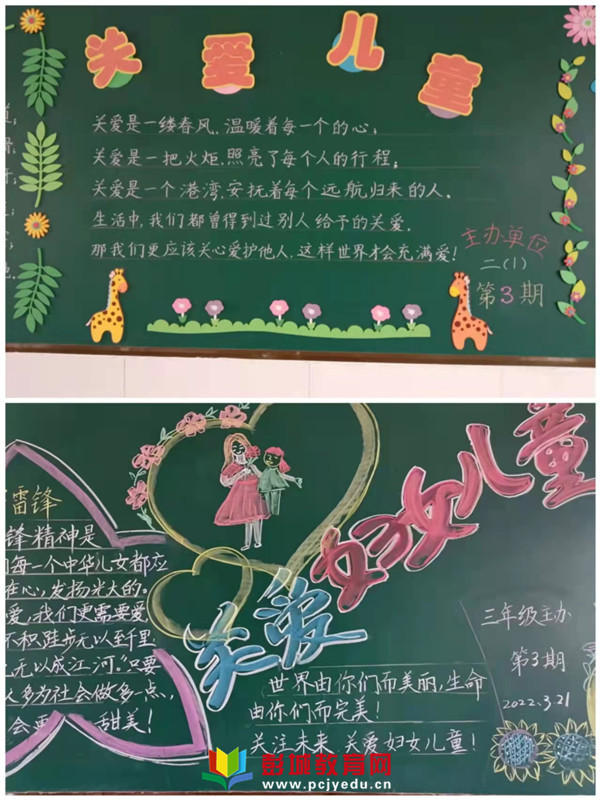 关爱儿童
关爱是一缕春风,温暖着每一个的心;
关爱是一把火炬,照亮了每个人的行程;
关爱是一个港湾,安抚着每个远航归来的人。
生活中,我们都曾得到过别人给予的关爱,
那我们更应该关心爱护他人,这样世界才会充满爱!
主办单位
二(1)
第3期
雷锋
锋精神是
每一个中华儿女都应
在心,发扬光大的。
爱,我们更需要爱
不积跬步无以至千里
无以成江河,“只要
人多为社会做多一点,
会更 甜美!
关爱妇女儿童
世界由你们而美丽,生命
由你们而完美!
关注未来,关爱妇女儿童!
三年级主办
第3期
2022.3.21
彭城教育网
www.pcjyedu.cn